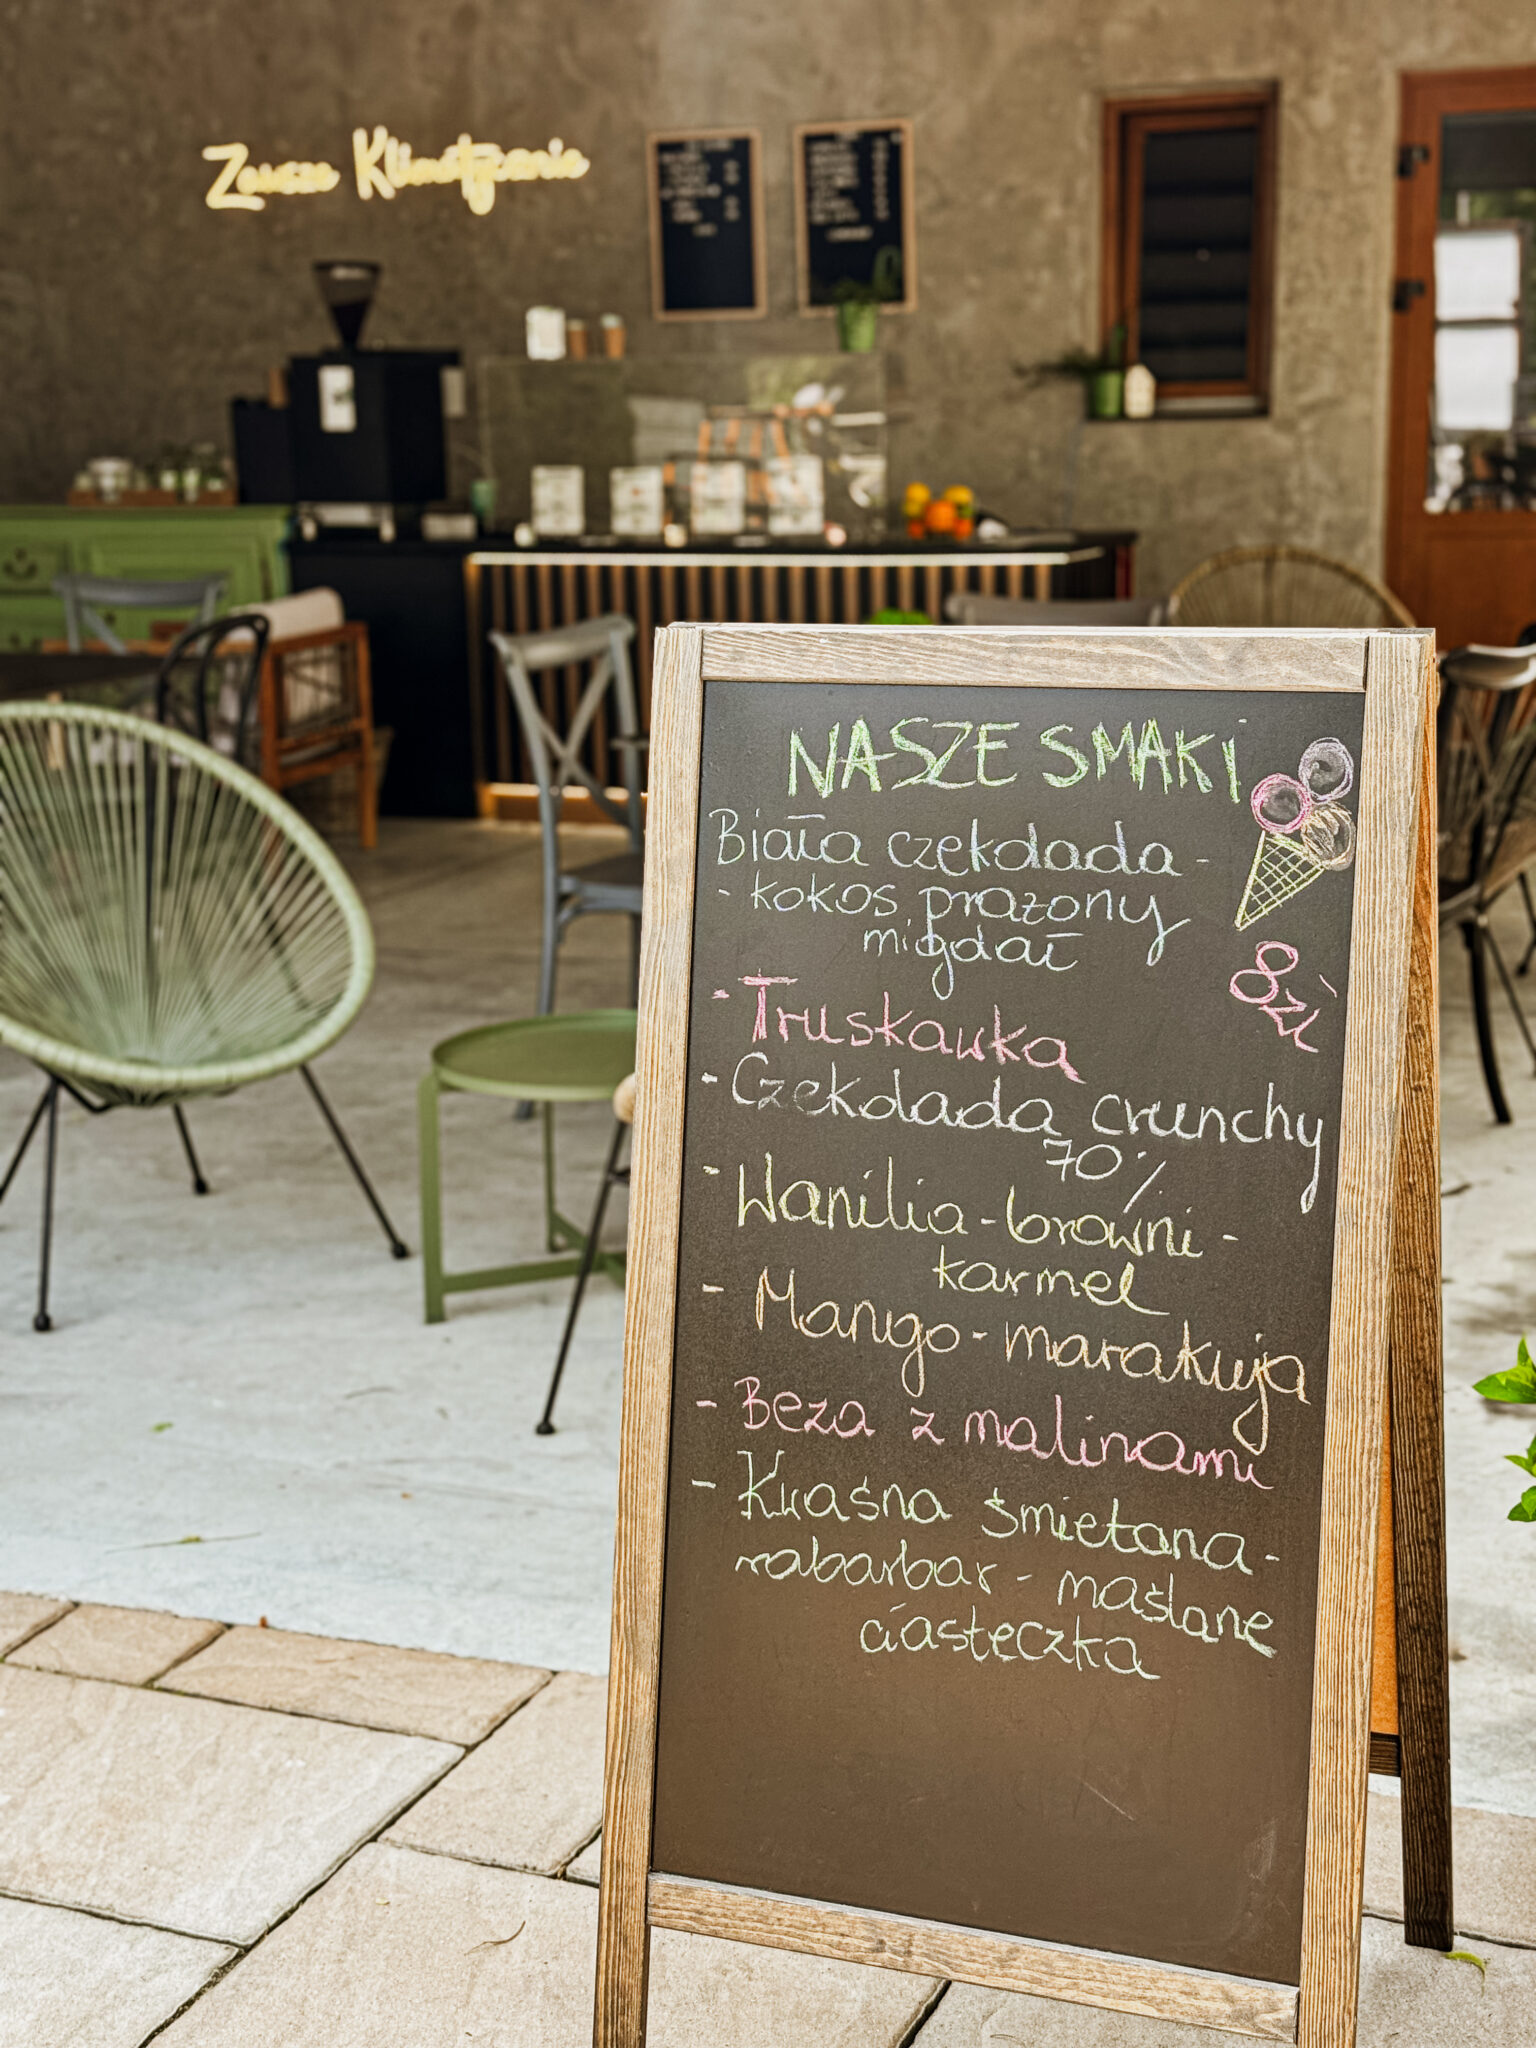 Zawsze Klimatycznie
NASZE SMAKI
Biała czekolada -
- kokos prażony
migdał
8zł
- Truskawka
- Czekolada crunchy
70%
- Wanilia - browni -
karmel
- Mango - marakuja
- Beza z malinami
- Kwaśna śmietana -
rabarbar - maślane
ciasteczka